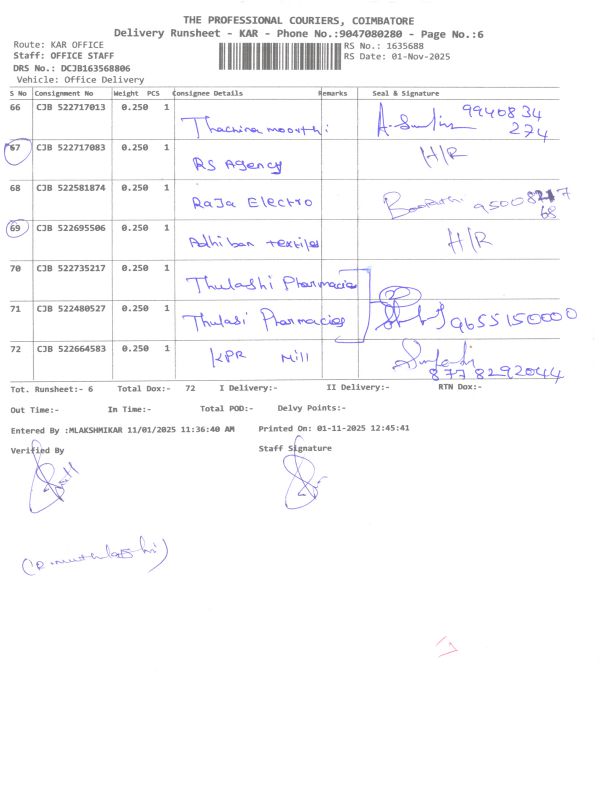 THE PROFESSIONAL COURIERS, COIMBATORE
Delivery Runsheet - KAR - Phone No.:9047080280 - Page No.:6
Route: KAR OFFICE RS No.: 1635688
Staff: OFFICE STAFF RS Date: 01-Nov-2025
DRS No.: DCJB163568806
Vehicle: Office Delivery
S No Consignment No Weight PCS Consignee Details Remarks Seal & Signature
66 CJB 522717013 0.250 1 Thachina moorthi 9940834
274
67 CJB 522717083 0.250 1 RS Agency H/R
68 CJB 522581874 0.250 1 RaJa Electro
69 CJB 522695506 0.250 1 Adhiban textiles H/R
70 CJB 522735217 0.250 1 Thulashi Pharmacies
71 CJB 522480527 0.250 1 Thulasi Pharmacies 9655150000
72 CJB 522664583 0.250 1 KPR Mill
8778292044
Tot. Runsheet:- 6 Total Dox:- 72 I Delivery:- II Delivery:- RTN Dox:-
Out Time:- In Time:- Total POD:- Delvy Points:-
Entered By :MLAKSHMIKAR 11/01/2025 11:36:40 AM Printed On: 01-11-2025 12:45:41
Verified By Staff Signature